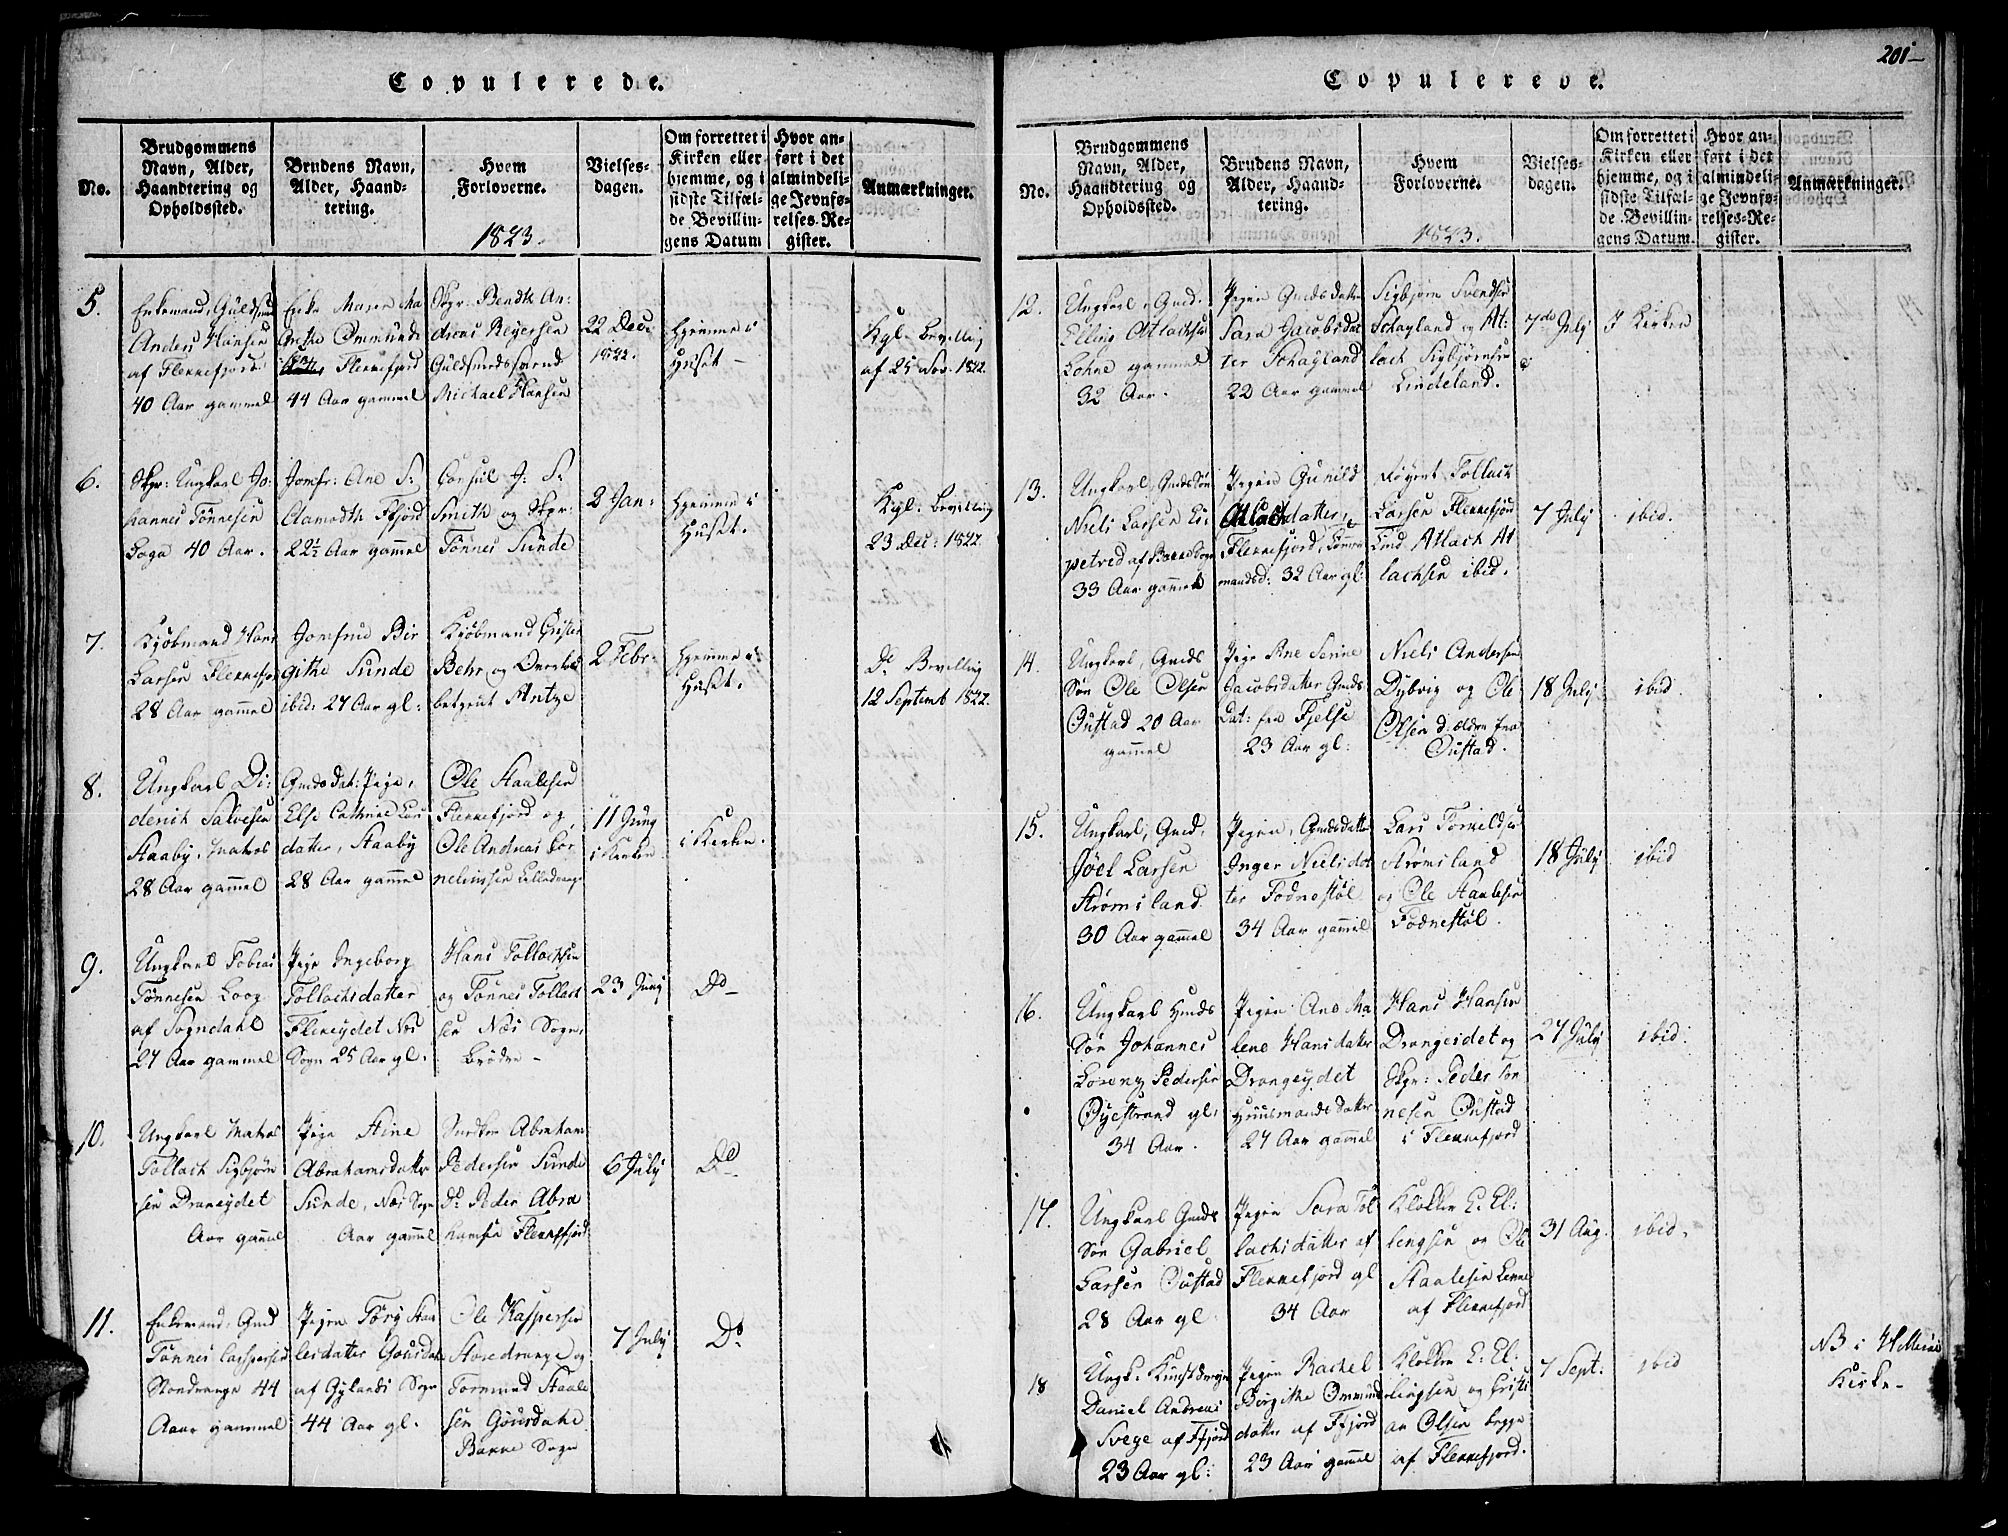 Copulerede.
No.
Brudgommens
Navn, Alder,
Haandtering og
Opholdssted.
Brudens Navn,
Alder, Haand-
tering.
Hvem
Forloverne.
1823.
Vielses-
dagen.
Om forrettet i
Kirken eller
hjemme, og i
sidste Tilfæl-
de Bevillin-
gens Datum
Hvor an-
ført i det
almindeli-
ge Jevnfø-
relses-Re-
gister.
Anmærkninger.
5.
Enkemand, Guldsmed
Anders Hansen
af Flekkefjord
40 Aar gammel
Enke Maren Ma
Ommunds
Flekkefjord
44 Aar gammel
Skpr: Bendth An:
dreas Reyersen
Guldsmedsvend
Michael Hansen
22 Dec:
1822.
Hjemme i
Huset –
Kgl. Bevilling
af 25 Nov. 1822.
6.
Skpr: Ungkarl Jo-
hannes Tönnesen
Loga 40 Aar.
Jomfr: Ane S:
Clamodth Ffjord
22½ Aar gammel
Consul J: S:
Smith og Skpr:
Tönnes Sunde
2 Jan:
Hjemme i
Huset.
Kgl: Bevilling
23 Dec: 1822.
7.
Kjöbmand Hans
Larsen Flekkefjor
28 Aar gammel
Jomfrue Bir
githe Sunde
ibid: 27 Aar gl:
Kjöbmand Crister
Behr og
betjent Antze
2 Febr:
Hjemme i
Huset.
Do Bevilling
12 Septemb 1822.
8.
Ungkarl Di:
derich Salvesen
Staaby, Matros
28 Aar gammel
Gmds dat: Pige,
Else Cathrine Lars
datter, Staaby
28 Aar gammel
Ole Staalesen
Flekkefjord og
Ole Andreas Cor
neliussen Lilledrange
11 Juny
i Kirken
i Kirken.
9.
Ungkarl Tobias
Tönnesen Loog
af Sogndahl
27 Aar gammel
Pige Ingeborg
Tollachsdatter
Flikeydet Nes
Sogn 25 Aar gl.
Hans Tollachsen
og Tönnes Tollach
sen Næs Sogn,
Brödre –
23 Juny
Do –
10.
Ungkarl Matros
Tollach Sigbjörn
sen Drangeydet
Aar gammel
Pige Stine
Abrahamsdatter
Sunde, Næs Sogn
Aar gammel
Snedker Abraham
Pedersen Sunde
Do Peder Abra
hamsen Flekkefjord
6 July
Do
11.
Enkemand, Gmd
Tönnes Caspersen
Stordrange 44
Aar gammel
Pigen Töry Staa
lesdatter Gousdal
af Gylands Sogn
44 Aar gl.
Ole Kaspersen
Storedrange og
Tormund Staale
sen Gousdahl
Bakke Sogn
7 July
Do
201
Copulerede.
No.
Brudgommens
Navn, Alder,
Haandtering og
Opholdssted.
Brudens Navn,
Alder, Haand-
tering.
Hvem
Forloverne.
1823.
Vielses-
dagen.
Om forrettet i
Kirken eller
hjemme, og i
sidste Tilfæl-
de Bevillin-
gens Datum.
Hvor an-
ført i det
almindeli-
ge Jevnfø-
relses-Re-
gister.
Anmærkninger.
12.
Ungkarl, Gmd.
Elling Atlachsen
Lohne gammel
32 Aar.
Pigen Gmdsdatter
Sara Jacobsdat
ter Schagland
22 Aar gammel
Sigbjörn Svendsen
Schagland og At:
lach Sigbjörnsen
Lindeland.
7de July
I Kirken
13.
Ungkarl, Gmds Sön
Niels Larsen Li-
petved af Bakke Sogn
33 Aar gammel
Pigen Gunild
Atlachdatter,
Flekkefjord, Tömmer
mandsd: 32 Aar gl:
Tollach
Larsen Flekkefjord
Atlach At
lachsen ibid.
7 July
ibid.
14.
Ungkarl, Gmds
Sön Ole Olsen
Oustad 20 Aar
gammel
Pige Ane Serine
Jacobsdatter Gmds
Dat: fra Fjelse
23 Aar gl:
Niels Andersen
Dybvig og Ole
Olsen d: ældre fra
Oustad.
18 July
ibid.
15.
Ungkarl, Gmd,
Joel Larsen
Strömsland
30 Aar gammel
Pigen, Gmdsdatter
Inger Nielsdat
ter Fodnestöl
34 Aar gammel
Lars Torkildsen
Strömsland
og Ole Staalesen
Fodnestöl.
18 July
ibid
16.
Ungkarl Gmds
Sön Johannes
Lorenz Pedersen
Öyestrand gl:
34 Aar.
Pigen Ane Ma
lene Hansdatter
Drangeydet
Huusmands datter
27 Aar gammel
Hans Hansen
Drangeidet og
Skpr: Peder Tön
nesen Oustad
i Flekkefjord
27 July
ibid:
17.
Ungkarl Gmds
Sön Gabriel
Larsen Oustad
28 Aar gl
Pigen Sara Tol
lachsdatter af
Flekkefjord gl
34 Aar
Klokker E. El:
lingsen og Ole
Staalesen
af Flekkefjord
31 Aug.
ibid.
18
Ungk: Kunstdreyer
Daniel Andreas
Svege af Ffjord
23 Aar gl:
Pigen Rachel
Birgithe Ommunds
datter af Ffjord
23 Aar gammel
Klokker E: El:
lingsen og Cristi
an Olsen begge
af Flekkefjord.
7 Sept:
ibid
NB i
Kirke –